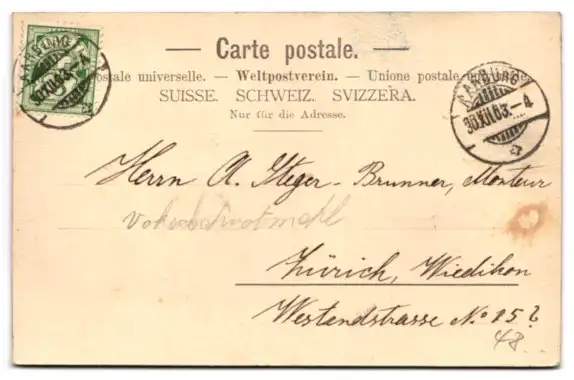 — Carte postale. —
postale universelle. — Weltpostverein. — Unione postale universale
SUISSE. SCHWEIZ. SVIZZERA.
Nur für die Adresse.
AARBURG
30.XII.03.–4
AARBURG
30.XII.03.–4
Herrn A. Steger-Brunner, Monteur
Zürich, Wiedikon
Westendstrasse No 25?
48.